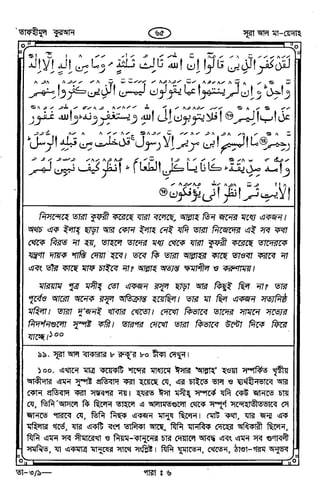 তাফহীমুল কুরআন ৬৫ সূরা আল মা-য়েদাহ
لَقَدْ كَفَرَ الَّذِينَ قَالُوا إِنَّ اللَّهَ ثَالِثُ ثَلَٰثَةٍ وَمَا مِنْ إِلَٰهٍ إِلَّا إِلَٰهٌ
وَّاحِدٌ وَإِنْ لَّمْ يَنْتَهُوا عَمَّا يَقُولُونَ لَيَمَسَّنَّ الَّذِينَ كَفَرُوا مِنْهُمْ
عَذَابٌ أَلِيمٌ أَفَلَا يَتُوبُونَ إِلَى اللَّهِ وَيَسْتَغْفِرُونَهُ وَاللَّهُ غَفُورٌ
رَّحِيمٌ مَا الْمَسِيحُ ابْنُ مَرْيَمَ إِلَّا رَسُولٌ قَدْ خَلَتْ مِنْ قَبْلِهِ الرُّسُلُ
وَأُمُّهُ صِدِّيقَةٌ كَانَا يَأْكُلَانِ الطَّعَامَ أُنْظُرْ كَيْفَ نُبَيِّنُ لَهُمُ
الْآيَاتِ ثُمَّ انْظُرْ أَنَّىٰ يُؤْفَكُونَ
নিসন্দেহে তারা কুফরী করেছে যারা বলেছে, আল্লাহ তিন জনের মধ্যে একজন।
অথচ এক ইলাহ ছাড়া আর কোন ইলাহ নেই যদি তারা নিজেদের এই সব কথা
থেকে বিরত না হয়, তাহলে তাদের মধ্য থেকে যারা কুফরী করেছে তাদেরকে
যন্ত্রণা দায়ক শাস্তি দেয়া হবে। তবে কি তারা আল্লাহর কাছে তওবা করবে না
এবং তাঁর কাছে মাফ চাইবে না? আল্লাহ অত্যন্ত ক্ষমাশীল ও করুণাময়।
মারয়াম পুত্র মসীহ্ তো একজন রসূল ছাড়া আর কিছুই ছিল না? তার
পূর্বেও আরো অনেক রসূল অতিক্রান্ত হয়েছিল। তার মা ছিল একজন সত্যনিষ্ঠ
মহিলা। তারা দু'জনই খাবার খেতো। দেখো কিভাবে তাদের সামনে সত্যের
নিদর্শনগুলো সুস্পষ্ট করি। তারপর দেখো তারা কিভাবে উল্টো দিকে ফিরে
যাচ্ছে।১০০
৯৯. সূরা আল বাকারার ৮ রুকূ'র ৮০ টীকা দেখুন।
১০০. এখানে মাত্র কয়েকটি শব্দের মাধ্যমে ঈসার 'আল্লাহ' হওয়া সম্পর্কিত খৃষ্টীয়
আকীদার এমন সুস্পষ্ট প্রতিবাদ করা হয়েছে যে, এর চাইতে ভাল ও দ্ব্যর্থহীনভাবে আর
কোন প্রতিবাদ করা সম্ভবপর নয়। হযরত ঈসা মসীহ্ সম্পর্কে যদি কেউ জানতে চায়
যে, তিনি আসলে কি ছিলেন তাহলে এ আলামতগুলো থেকে সম্পূর্ণ সন্দেহাতীতভাবে সে
জানতে পারবে যে, তিনি নিছক একজন মানুষ ছিলেন। মোট কথা, যার জন্ম এক
মহিলার গর্ভে, যার একটি বংশ তালিকা আছে, যিনি মানবিক দেহের অধিকারী ছিলেন,
যিনি এমন সব সীমারেখা ও নিয়ম-কানুনের চার দেয়ালে আবদ্ধ এবং এমন সব গুণাবলী
সমন্বিত, যা একমাত্র মানুষের সাথে সংশ্লিষ্ট। যিনি ঘুমাতেন, খেতেন, ঠাণ্ডা-গরম অনুভব
তা-৩/৯— পারা : ৬